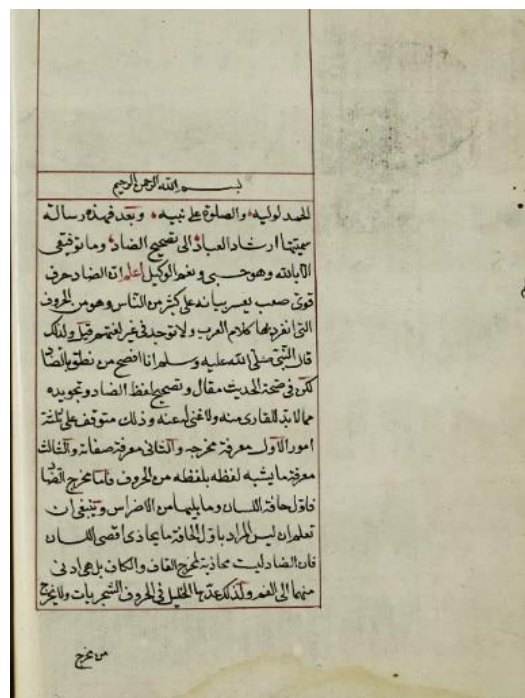 بسم الله الرحمن الرحيم
الحمد لوليه والصلوة على نبيه وبعد فهذه رسالة
سميتها ارشاد العباد الى تصحيح الضاد وما توفيقى
الا بالله وهو حسبى ونعم الوكيل اعلم ان الضاد حرف
قوى صعب يعسر بيانه على كثير من الناس وهو من الحروف
التى انفرد بها كلام العرب ولا توجد فى غير لغتهم قيل ولذلك
قال النبى صلى الله عليه وسلم انا افصح من نطق بالضاد
لكن فى صحة الحديث مقال وتصحيح لفظ الضاد وتجويده
مما لا بد للقارى منه ولا غنى له عنه وذلك متوقف على ثلثة
امور الاول معرفة مخرجه والثانى معرفة صفاته والثالث
معرفة ما يشبه لفظه بلفظه من الحروف فاما مخرج الضاد
فاول حافة اللسان وما يليها من الاضراس وينبغى ان
تعلم ان ليس المراد باول الحافة ما يحاذى اقصى اللسان
فان الضاد ليست محاذية لمخرج القاف والكاف بل هى ادنى
منهما الى الفم ولذلك عدها الخليل فى الحروف الشجريات ولا يخرج
من مخرج